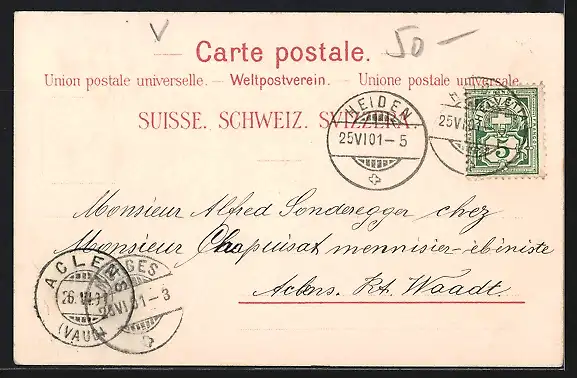 V
50 —
Carte postale.
Union postale universelle. – Weltpostverein. – Unione postale universale.
SUISSE. SCHWEIZ. SVIZZERA.
HEIDEN
25 VI 01 – 5
25 VI 01
5
Monsieur Alfred Sonderegger chez
Monsieur Chapuisat mennisier-ébéniste
Aclens. Kt. Waadt.
ACLENS
26. VI. 01
(VAUD)
MORGES
26 VI 01 – 3